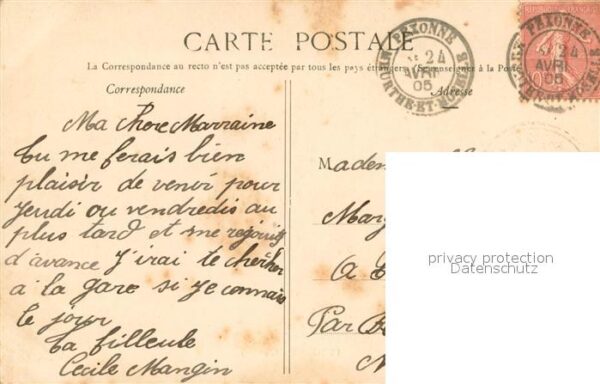 CARTE POSTALE
La Correspondance au recto n'est pas acceptée par tous les pays étrangers (Se renseigner à la Poste
Correspondance
Adresse
PEXONNE
24
AVRIL
05
MEURTHE-ET-MOSELLE
REPUBLIQUE FRANÇAISE
PEXONNE
24
AVRIL
05
Ma chere Marraine
tu me ferais bien
plaisir de venir pour
jeudi ou vendredis au
plus tard et me rejouis
d'avance J'irai te chercher
a la gare si je connais
le jour
ta filleule
Cecile Mangin
Madem
Mar
A
Par
privacy protection
Datenschutz